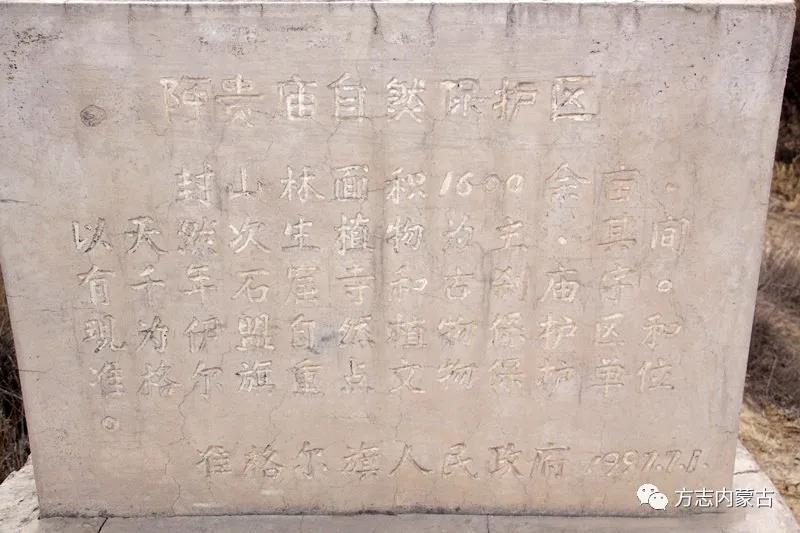 阿贵庙自然保护区
封山林面积1600余亩.
以天然次生植物为主.其间
有千年石窟寺和古刹庙宇。
现为伊盟自然植物保护区和
准格尔旗重点文物保护单位
。
准格尔旗人民政府 1997.7.1.
方志内蒙古